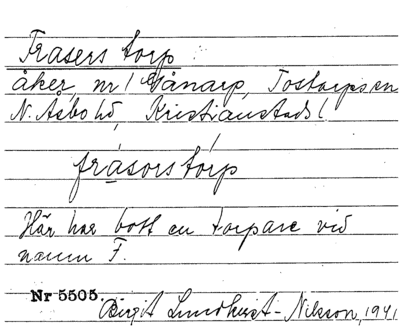 Frasers torp
åker, nr 1 Vånarp, Tostarps sn
N. Åsbo hd, Kristianstads l
frásorstórp
Här har bott en torpare vid
namn F.
Nr 5505. Birgit Lundkvist-Nilsson, 1941